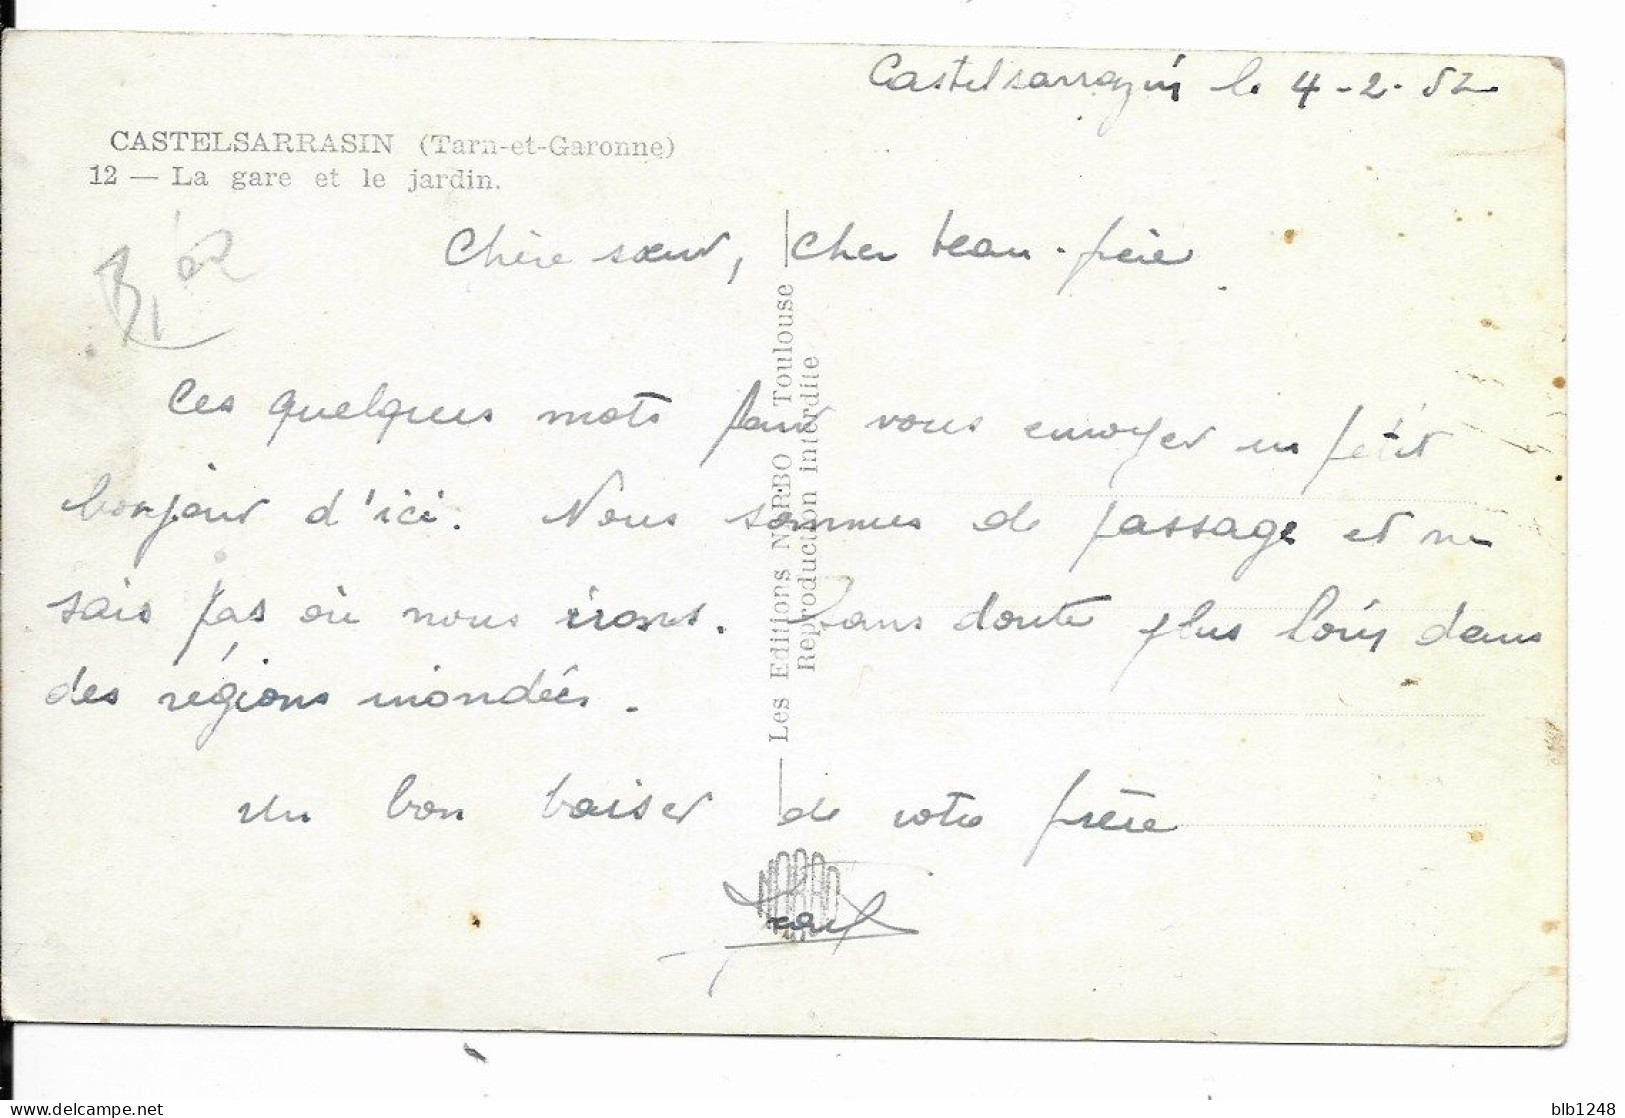 Castelsarrazin le 4-2-52
CASTELSARRASIN (Tarn-et-Garonne)
12 — La gare et le jardin.
Chère sœur, cher beau-frère.
Ces quelques mots pour vous envoyer un petit
bonjour d'ici. Nous sommes de passage et ne
sais pas où nous irons. Sans doute plus loin dans
des régions inondées.
Un bon baiser de votre frère
Les Editions NARBO Toulouse
Reproduction interdite
blb1248